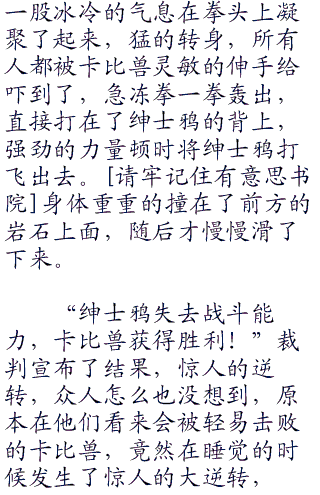 一股冰冷的气息在拳头上凝
聚了起来，猛的转身，所有
人都被卡比兽灵敏的伸手给
吓到了，急冻拳一拳轰出，
直接打在了绅士鸦的背上，
强劲的力量顿时将绅士鸦打
飞出去。[请牢记住有意思书
院]身体重重的撞在了前方的
岩石上面，随后才慢慢滑了
下来。
“绅士鸦失去战斗能
力，卡比兽获得胜利！”裁
判宣布了结果，惊人的逆
转，众人怎么也没想到，原
本在他们看来会被轻易击败
的卡比兽，竟然在睡觉的时
候发生了惊人的大逆转，